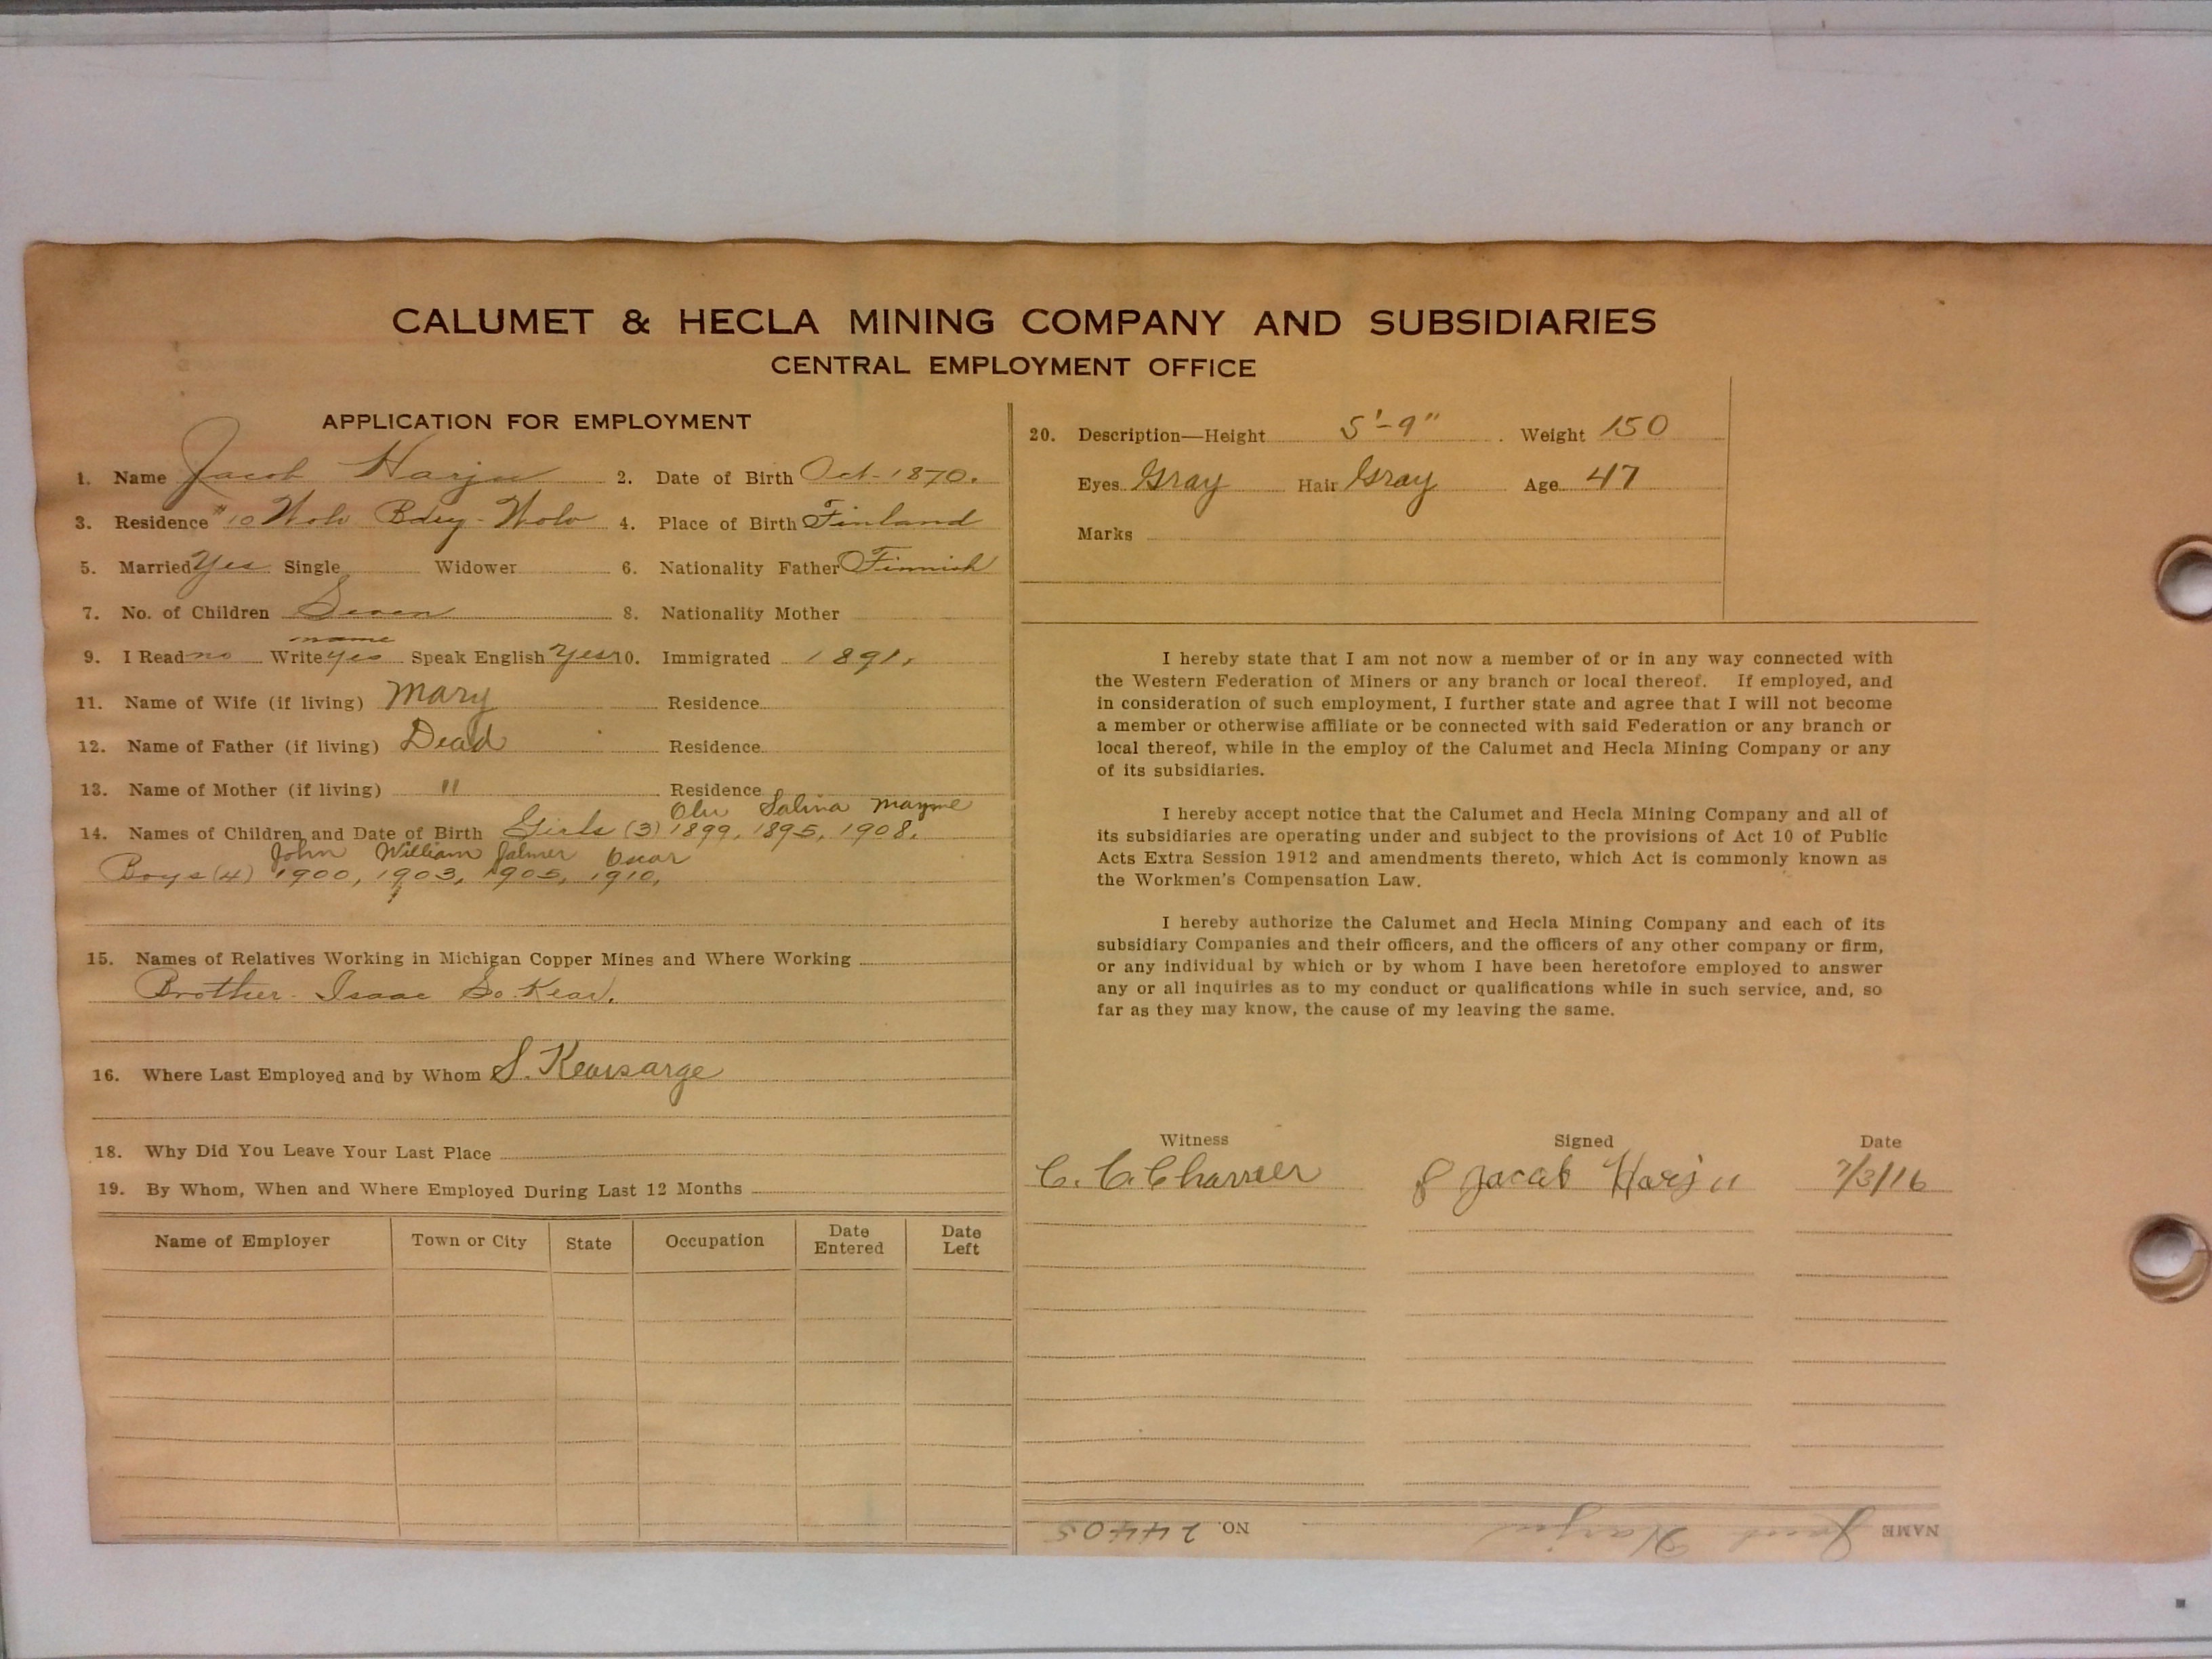 CALUMET & HECLA MINING COMPANY AND SUBSIDIARIES
CENTRAL EMPLOYMENT OFFICE
APPLICATION FOR EMPLOYMENT
1. Name Jacob Harju 2. Date of Birth Oct-1870.
3. Residence #10 Wolv Bdry-Wolv 4. Place of Birth Finland
5. Married Yes Single Widower 6. Nationality Father Finnish
7. No. of Children Seven 8. Nationality Mother
name
9. I Read no Write yes Speak English Yes 10. Immigrated 1891.
11. Name of Wife (if living) Mary Residence
12. Name of Father (if living) Dead Residence
13. Name of Mother (if living) " Residence
Salina Mayme
14. Names of Children and Date of Birth Girls (3) 1899, 1895, 1908.
John William Jalmer Oscar
Boys (4) 1900, 1903, 1905, 1910,
15. Names of Relatives Working in Michigan Copper Mines and Where Working
Brother- Isaac So. Kear.
16. Where Last Employed and by Whom S. Kearsarge
18. Why Did You Leave Your Last Place
19. By Whom, When and Where Employed During Last 12 Months
Name of Employer Town or City State Occupation Date Entered Date Left
20. Description—Height 5'-9" Weight 150
Eyes Gray Hair Gray Age 47
Marks
I hereby state that I am not now a member of or in any way connected with
the Western Federation of Miners or any branch or local thereof. If employed, and
in consideration of such employment, I further state and agree that I will not become
a member or otherwise affiliate or be connected with said Federation or any branch or
local thereof, while in the employ of the Calumet and Hecla Mining Company or any
of its subsidiaries.
I hereby accept notice that the Calumet and Hecla Mining Company and all of
its subsidiaries are operating under and subject to the provisions of Act 10 of Public
Acts Extra Session 1912 and amendments thereto, which Act is commonly known as
the Workmen's Compensation Law.
I hereby authorize the Calumet and Hecla Mining Company and each of its
subsidiary Companies and their officers, and the officers of any other company or firm,
or any individual by which or by whom I have been heretofore employed to answer
any or all inquiries as to my conduct or qualifications while in such service, and, so
far as they may know, the cause of my leaving the same.
Witness Signed Date
C. C. Jacob Harju 7/3/16
NAME Jacob Harju NO. 24405